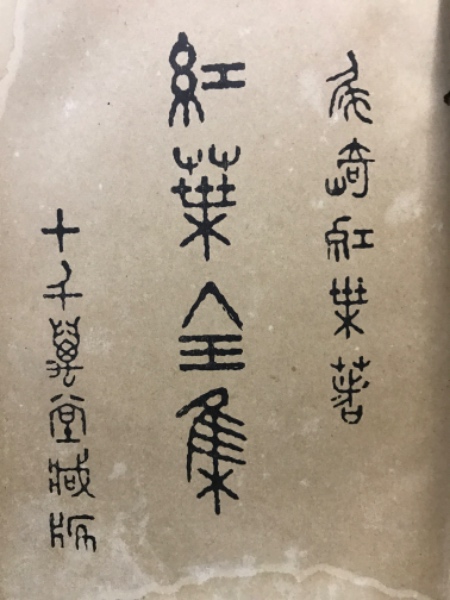 尾崎紅葉著
紅葉全集
十千萬堂藏版